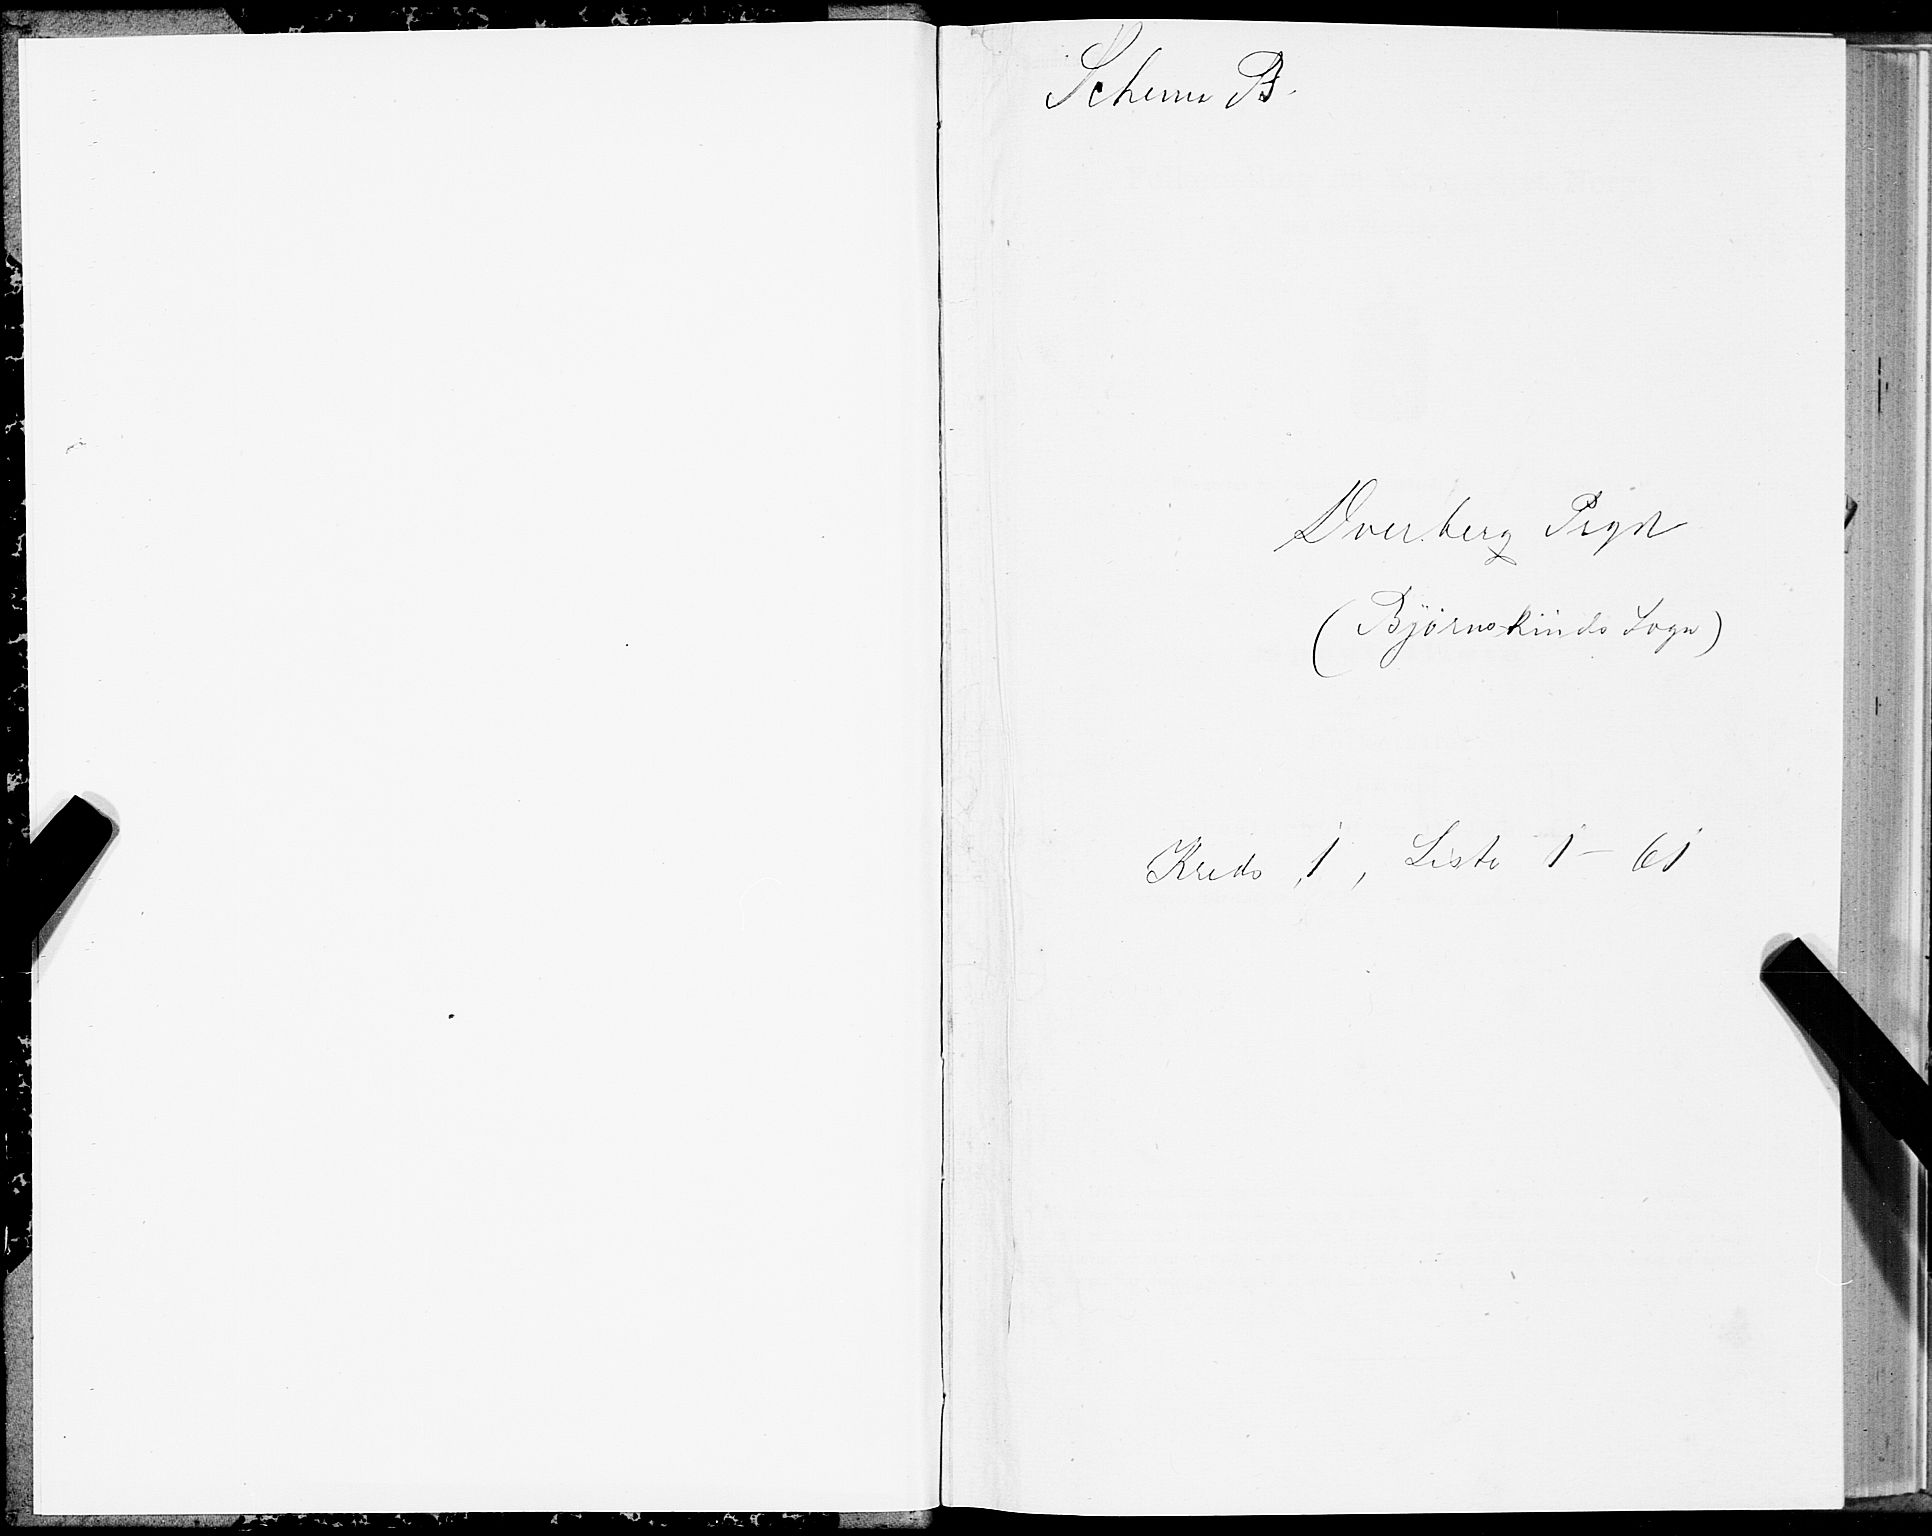 Schema B.
Dverberg Prgst
(Bjørnskinds Sogn)
Kreds 1, Liste 1 - 61